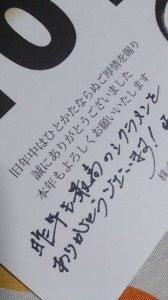 旧年中はひとかたならぬご厚情を賜り
誠にありがとうございました
本年もよろしくお願いいたします
昨年も最高のシクラメンを
ありがとうございます!
株